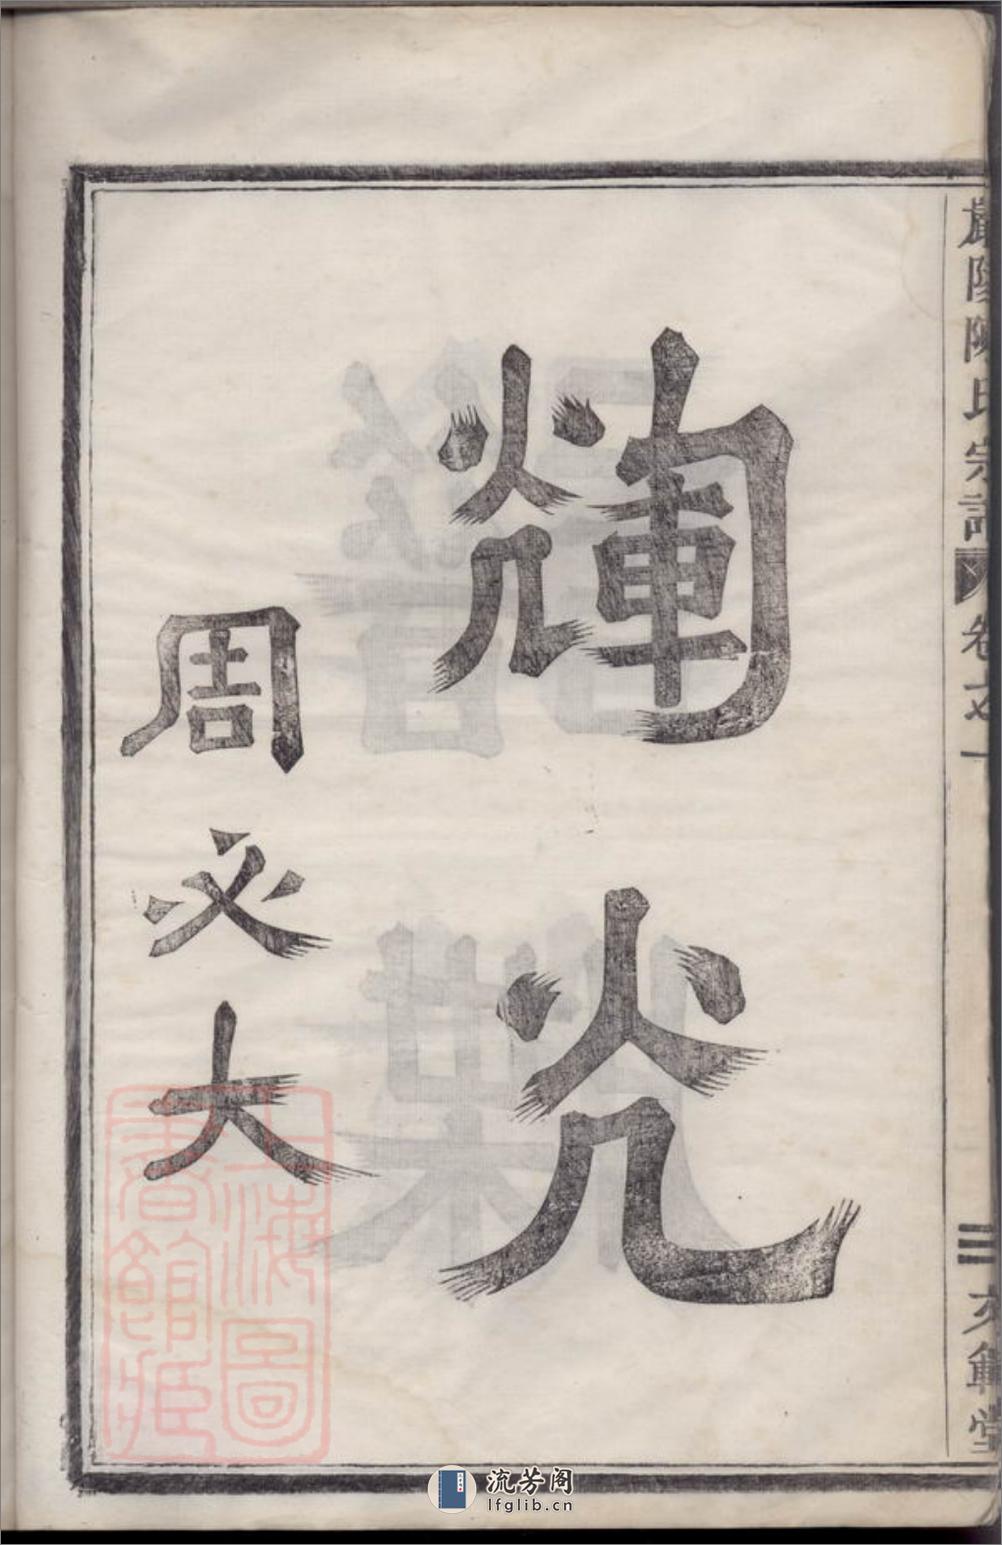 陳氏宗譜
卷之一
三
文範堂
輝光
周必大
上海圖
書館藏
流芳阁
lfglib.cn